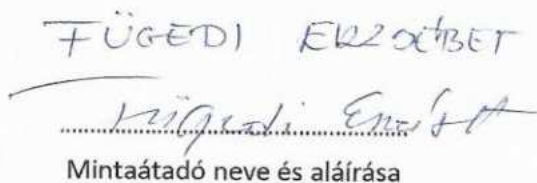 FÜGEDI ERZSÉBET
Fügedi Erzsébet
Mintaátadó neve és aláírása